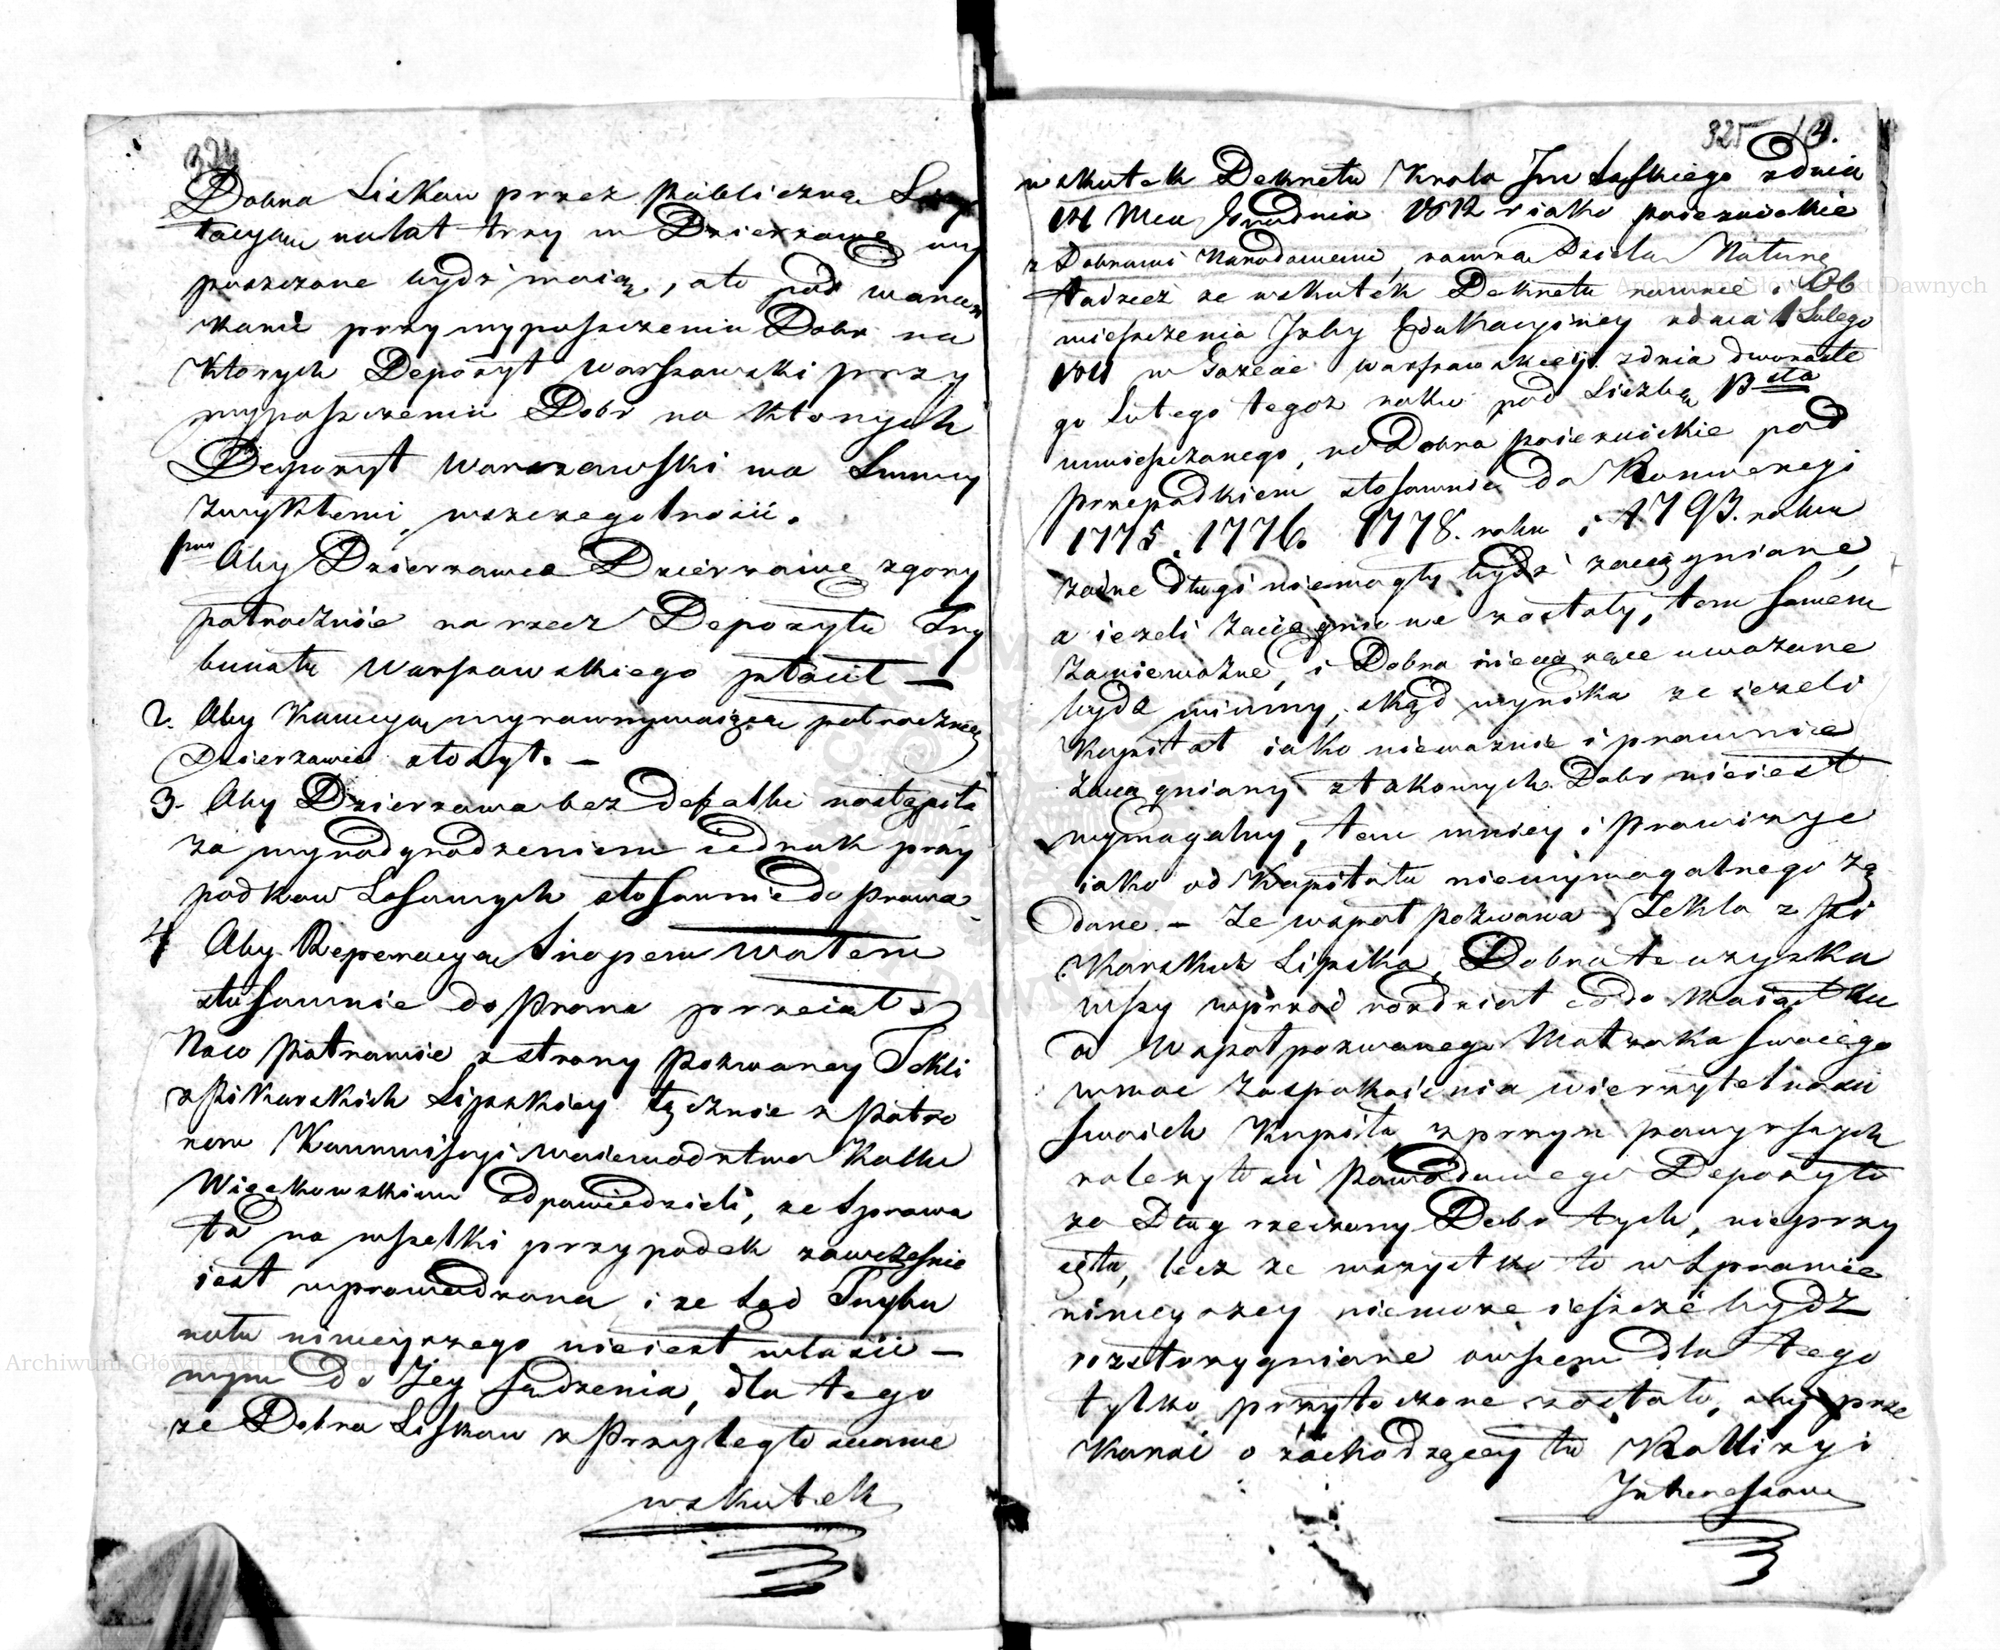 324
Dobra Liskow przez publiczną Licy
tacyą na lat trzy w Dzierzawę wy
puszczone bydź maią, a to pod warun
kami przy wypuszczeniu Dobr na
ktorych Depozyt Warszawski przy
wypuszczeniu Dobr na ktorych
Depozyt Warszawski ma Summy
zwykłemi, w szczegolności.
1mo Aby Dzierzawca Dzierzawę zgory
połrocznie na rzecz Depozytu Try
bunału Warszawskiego płacił —
2. Aby Kaucyą wyrawnywaiącą połroczney
Dzierzawie złozył. —
3. Aby Dzierzawa bez defalki nastąpiła
za wynadgrodzeniem iednak przy
padkow Losowych stosownie do prawa
4 Aby Reperacyą Snopem Wałem
stosownie do Prawa przeiął
Na co Patronowie z strony pozwaney Tekli
z Pikarskich Lipskiey łącznie z Patro
nem Kommissyi Woiewodztwa Kalli
Więckowskim odpowiedzieli, ze Sprawa
ta na wszelki przypadek zawcześnie
iest wprowadzona i ze Sąd Trybu
nału ninieyszego nieiest właści —
wym do Jey sądzenia, dla tego
ze Dobra Liskow z Przyległościami
wskutek
325 13.
wskutek Dekretu Krola Jmci Saskiego zdnia
Mca Grudnia 1812 r iako poiezuickie
z Dobrami Narodowemi, rowną Dzielą Naturę
tudziez ze wskutek Dekretu rownie i Ob
wieszczenia Izby Edukacyiney zdnia 1 Lutego
1811 w Gazecie Warszawskiey zdnia dwunaste
go Lutego tegoz roku pod Liczbą 13sta
umieszczonego, na Dobra poiezuickie pod
przepadkiem stosownie do Konwencyi
1775. 1776. 1778. roku i 1793. roku
zadne Długi niemogły bydź zaciągniane
a iezeli zaciągnione zostały, tem samem
zanieważne, i Dobra niewiążące uwazane
bydź winny, skąd wynika ze iezeli
Kapitał iako nieważnie i prawnie
zaciągniany z takowych Dobr nieiest
wymagalny, tem mniey i Prowizye
iako od Kapitału niewymagalnego żą
dane. — Ze wspoł pozwana Tekla z Pi
karskich Lipska, Dobra te uzyska
wszy wprzod rozdział co do Maiątku
od Wspołpozwanego Małzonka swoiego
w moc zaspokoienia wierzytelności
swoich Kapitału z przyn powyzszych
nalezytości Powodowego Depozytu
za Dług rzeczony Dobr tych, nieprzy
ięła, lecz ze wszystko to w Sprawie
ninieyszey niemoze ieszcze bydź
rozstrzygniane owszem dla tego
tylko przytoczone zostało, aby prze
konać o zachodzącey tu Kollizyi
Interessow
Archiwum Główne Akt Dawnych
Archiwum Główne Akt Dawnych